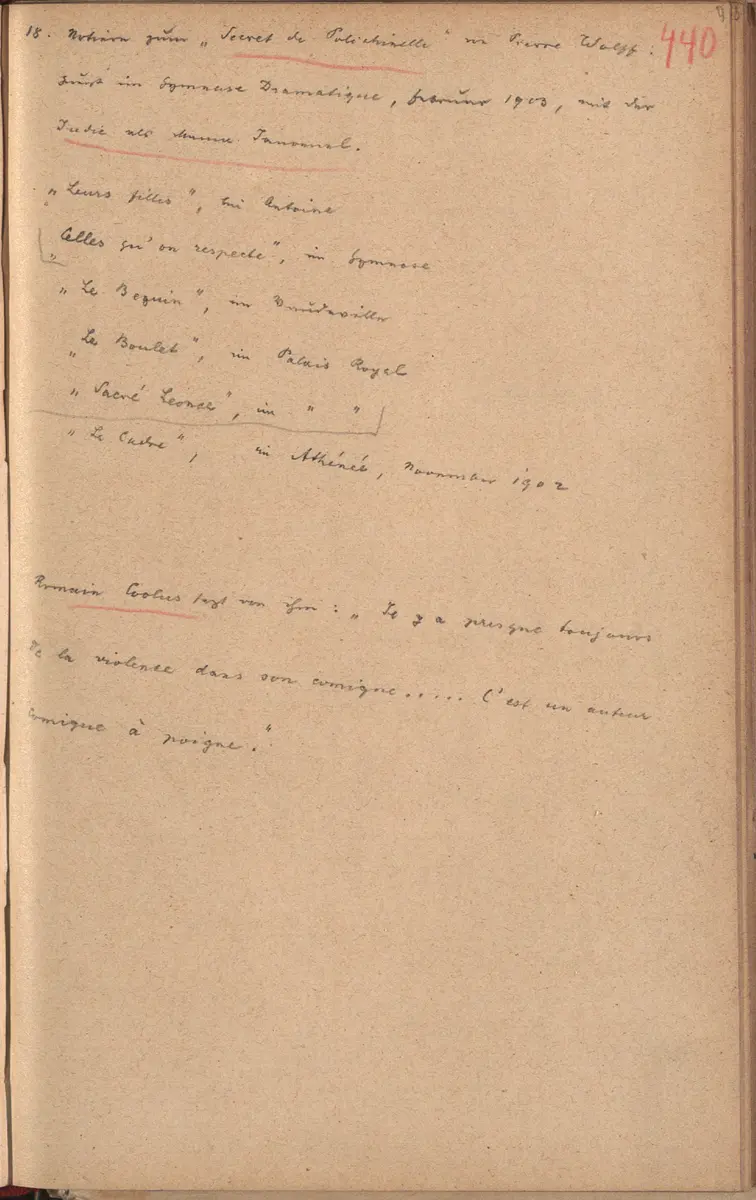 440
18. Notizen zum „Secret de Polichinelle" von Pierre Wolff:
zuerst im Gymnase Dramatique, Februar 1903, mit der
Judic als Mame Jouvenel.
„Leurs filles", bei Antoine
„Celles qu'on respecte", im Gymnase
„Le Beguin", im Vaudeville
„Le Boulet", im Palais Royal
„Sacré Leonce", im " "
„Le Cadre", im Athénée, November 1902
Romain Coolus sagt von ihm: „Il y a presque toujours
de la violence dans son comique..... C'est un auteur
comique à poigne."